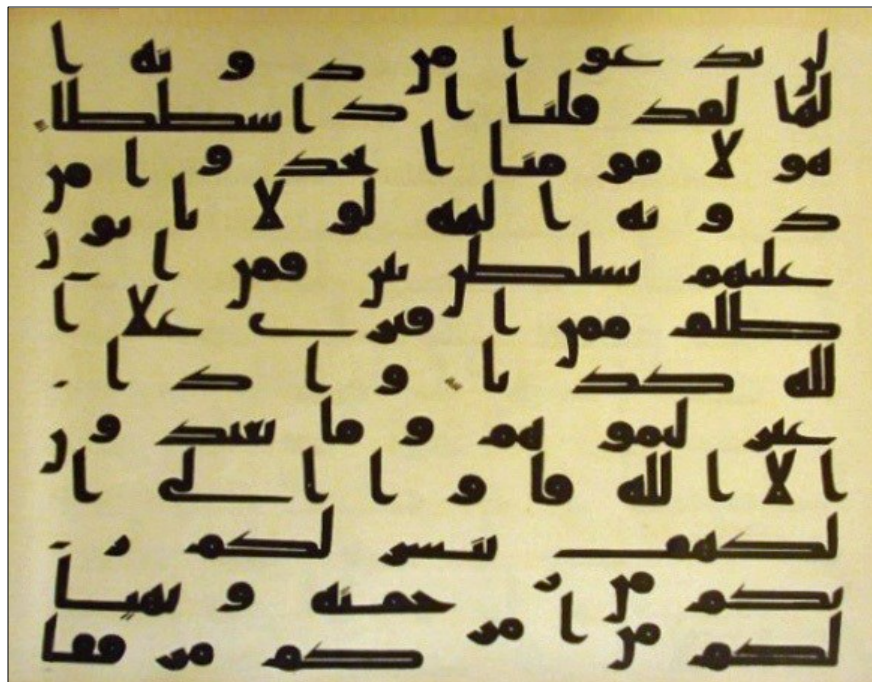 لن ندعوا من دونه ا
لها لقد قلنا اذا شططا
هولا قومنا اتخذوا من
دونه الهة لولا ياتون
عليهم بسلطن بين فمن ا
ظلم ممن افترى علا ا
لله كذبا واذ ا
عتزلتموهم وما يعبدون
الا الله فاوا الى ا
لكهف ينشر لكم ر
بكم من رحمته ويهيا
لكم من امركم مرفقا